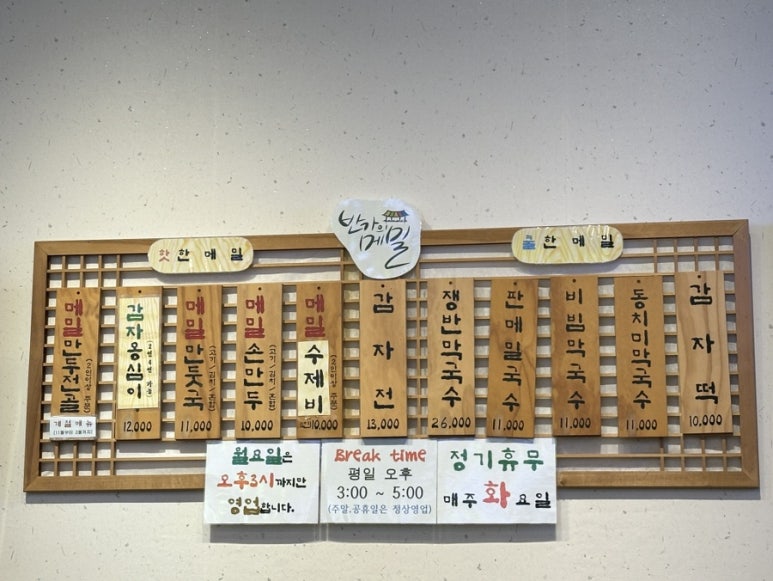 반가의
메밀
핫한메밀
쿨한메밀
메밀만두전골
(2인이상 주문)
계절메뉴
감자옹심이
12,000
메밀만둣국
(고기/김치/혼합)
11,000
메밀손만두
(고기/김치/혼합)
10,000
메밀수제비
(2인이상 주문)
10,000
감자전
13,000
쟁반막국수
26,000
판메밀국수
11,000
비빔막국수
11,000
동치미막국수
11,000
감자떡
10,000
월요일은
오후3시까지만
영업합니다.
Break time
평일 오후
3:00 ~ 5:00
(주말,공휴일은 정상영업)
정기휴무
매주 화요일